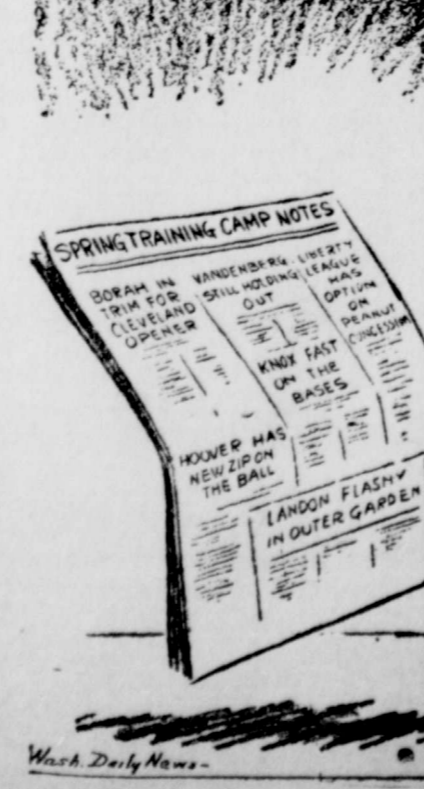 SPRING TRAINING CAMP NOTES
BORAH IN
TRIM FOR
CLEVELAND
OPENER
VANDENBERG
STILL HOLDING
OUT
LIBERTY
LEAGUE
HAS
OPTION
ON
PEANUT
CONCESSION
KNOX FAST
ON THE
BASES
HOOVER HAS
NEW ZIP ON
THE BALL
LANDON FLASHY
IN OUTER GARDEN
Wash. Daily News-